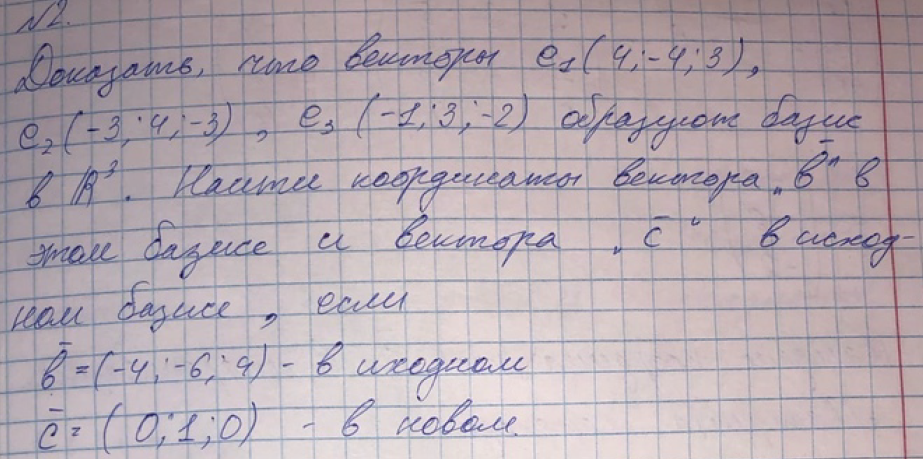 №2.
Доказать, что векторы e₁(4;-4;3),
e₂(-3;4;-3), e₃ (-1;3;-2) образуют базис
в ℝ³. Найти координаты вектора „b̄" в
этом базисе и вектора „c̄" в исход-
ном базисе, если
b̄=(-4;-6;4) - в иходном
c̄= (0;1;0) - в новом.